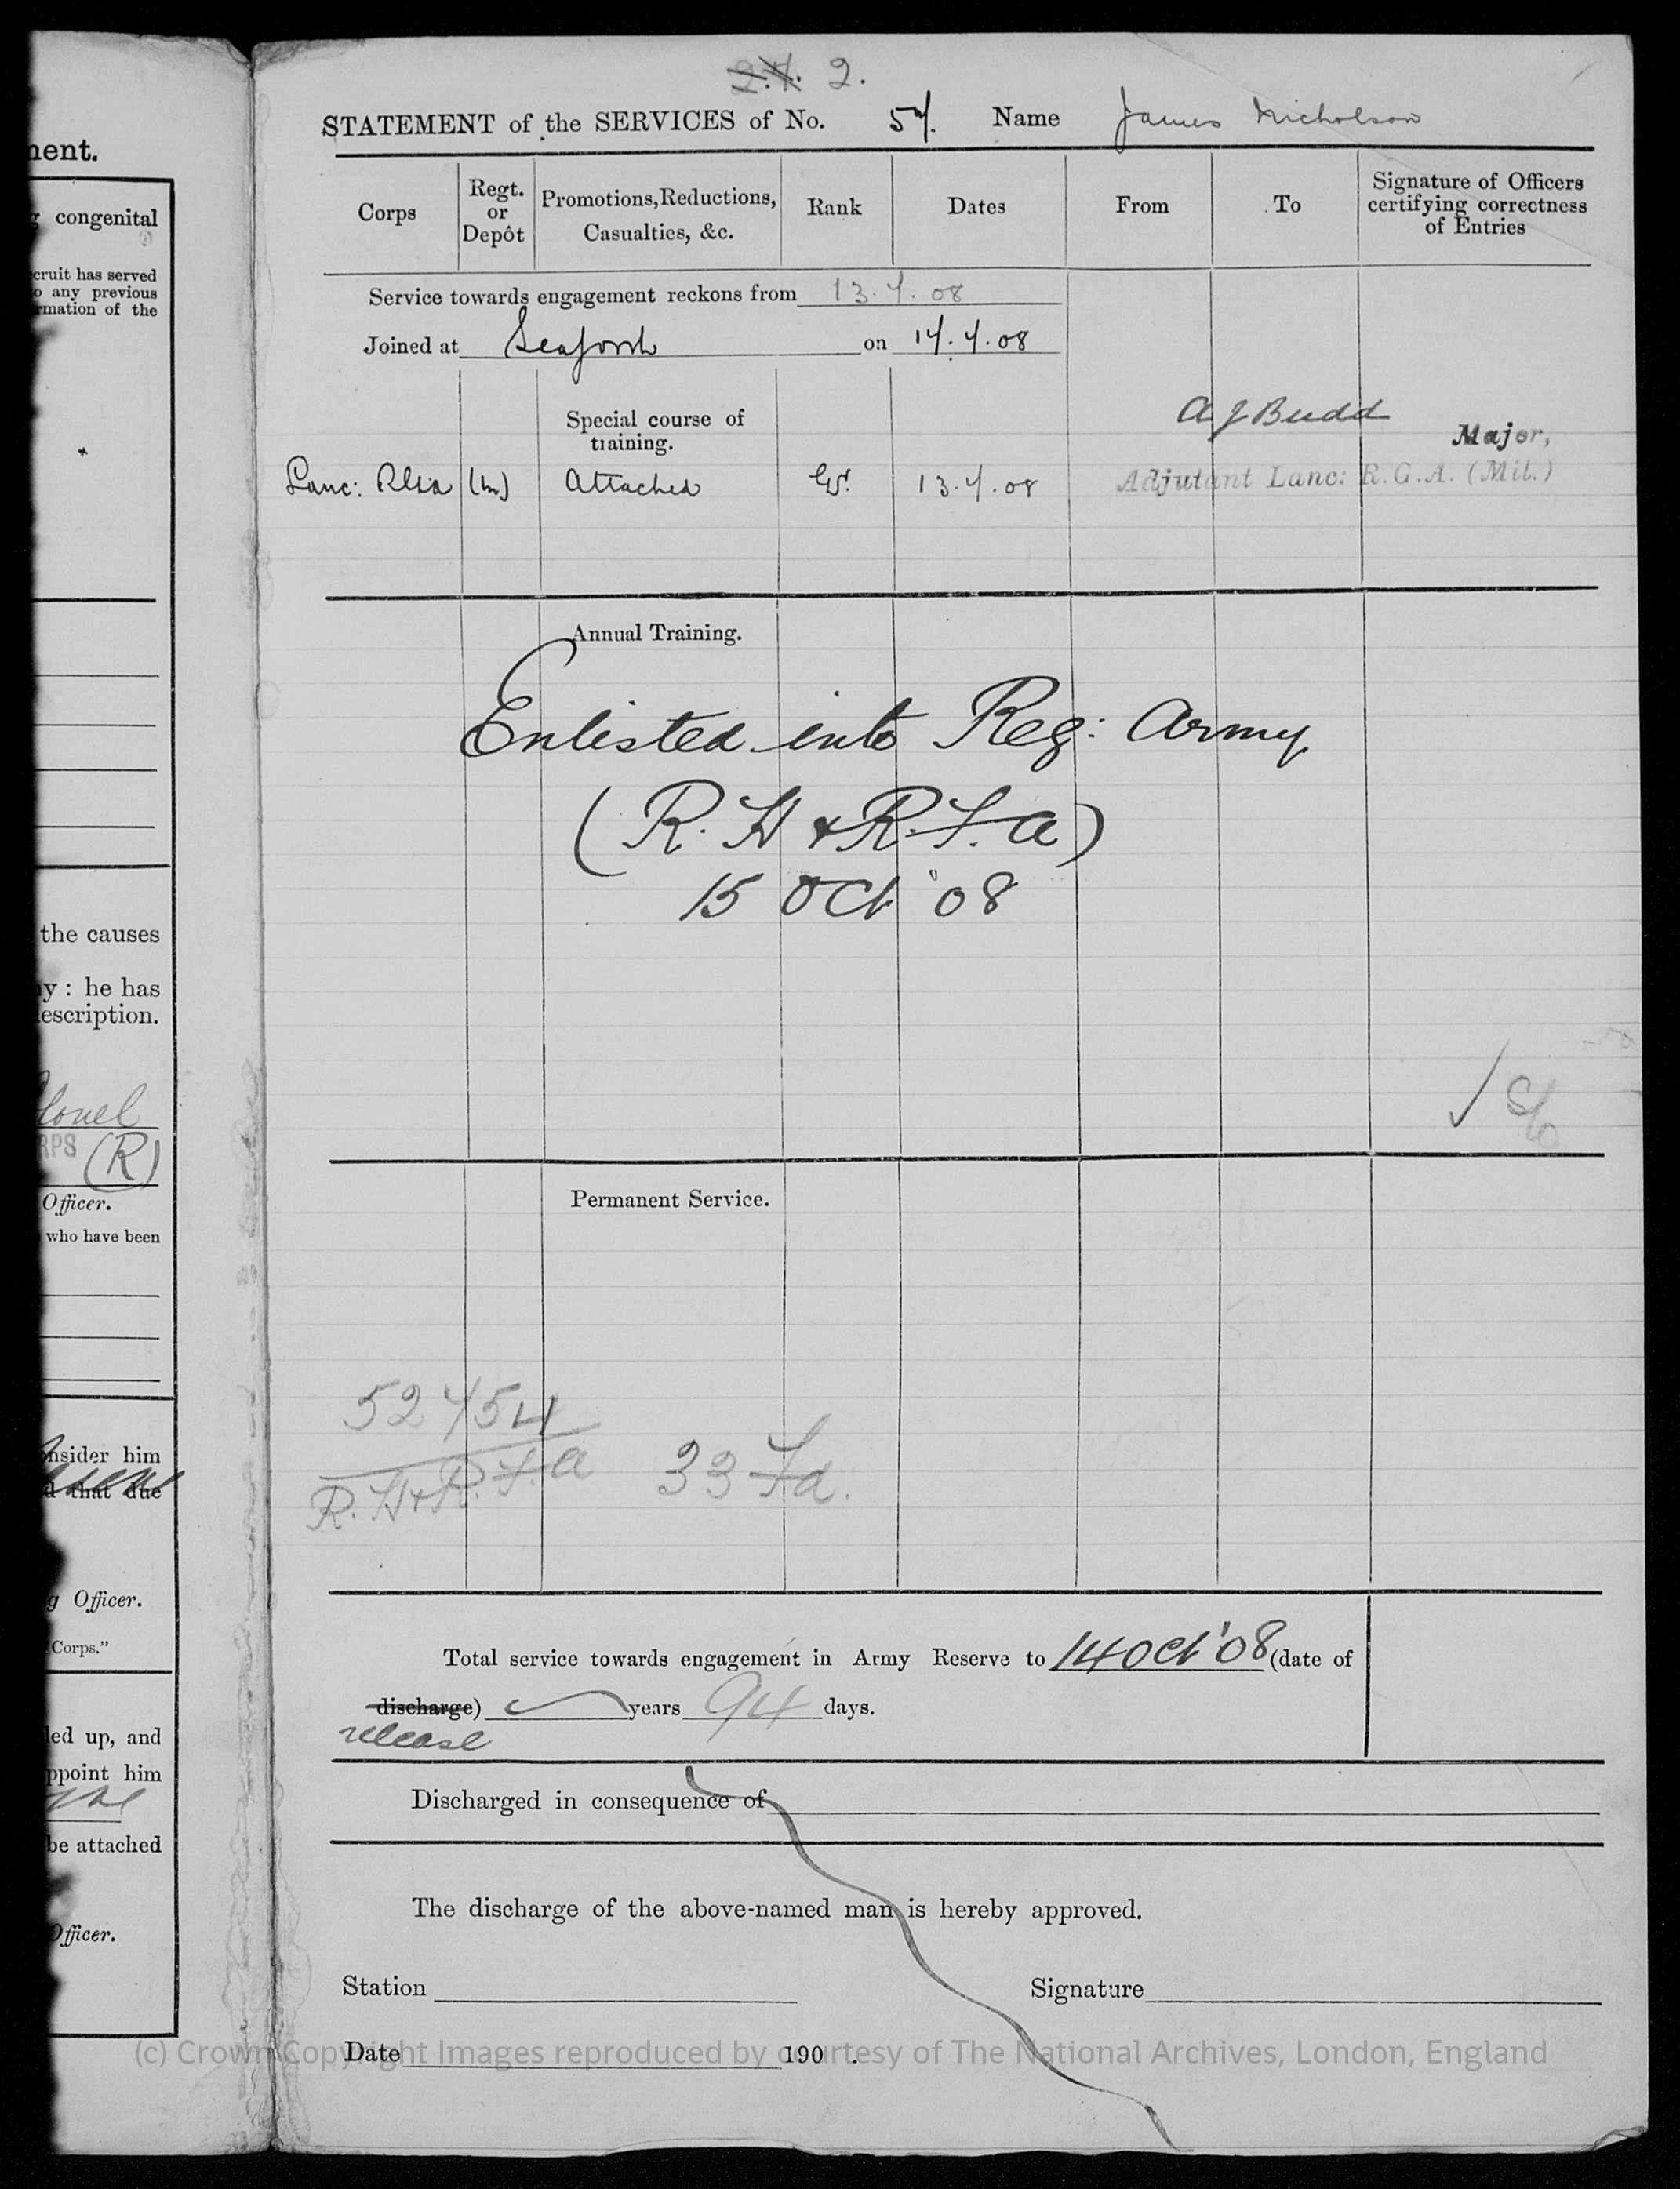 2.
STATEMENT of the SERVICES of No. 57. Name James Nicholson
Corps
Regt. or Depôt
Promotions, Reductions, Casualties, &c.
Rank
Dates
From
To
Signature of Officers certifying correctness of Entries
Service towards engagement reckons from 13.7.08
Joined at Seaforth on 17.7.08
Special course of
training.
A J Budd
Major,
Lanc: RGA (m) Attached Gr. 13.7.08 Adjutant Lanc: R.G.A. (Mil.)
Annual Training.
Enlisted into Reg: Army
(R.H & R.F.A)
15 Oct '08
Permanent Service.
52754
R.H & R.F.A 33 Fd.
Total service towards engagement in Army Reserve to 14 Oct '08 (date of
discharge) years 94 days.
release
Discharged in consequence of
The discharge of the above-named man is hereby approved.
Station
Signature
Date 190 .
(c) Crown Copyright Images reproduced by courtesy of The National Archives, London, England
ment.
congenital
cruit has served
o any previous
rmation of the
the causes
y : he has
escription.
lonel
RPS (R)
Officer.
who have been
nsider him
d that due
g Officer.
Corps."
led up, and
ppoint him
be attached
Officer.